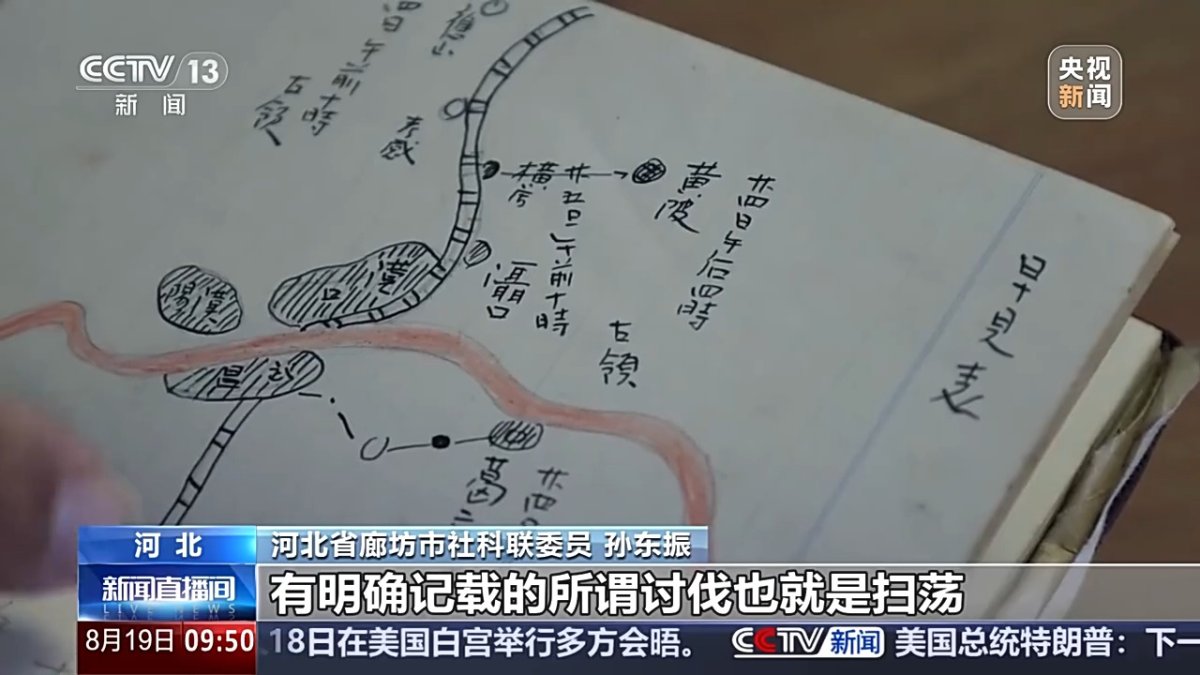 CCTV 13
新闻
央视
新闻
四日午前十時
占領
孝感
横
廿五日午前十時
黄陂
廿四日午后四時
漢口
漢陽
占領
葛
廿四
河北
河北省廊坊市社科联委员 孙东振
新闻直播间
LIVE NEWS
有明确记载的所谓讨伐也就是扫荡
8月19日 09:50
18日在美国白宫举行多方会晤。
CCTV 新闻
美国总统特朗普：下一